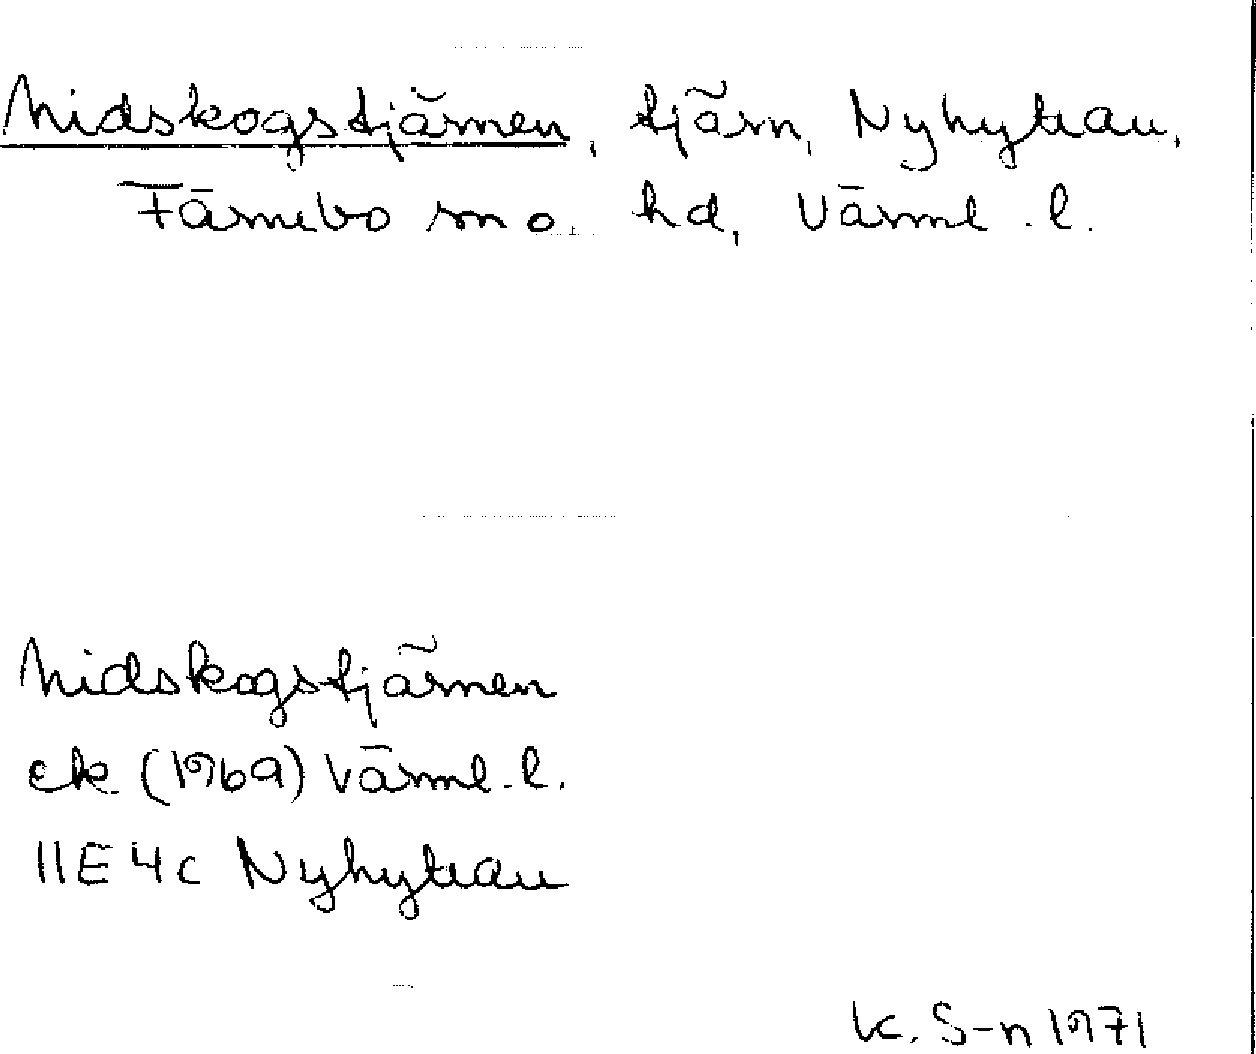 Midskogstjärnen, tjärn, Nyhyttan,
Färnebo sn o. hd, Värml. l.
Midskogstjärnen
ek (1969) Värml. l.
11E 4c Nyhyttan
K. S-n 1971